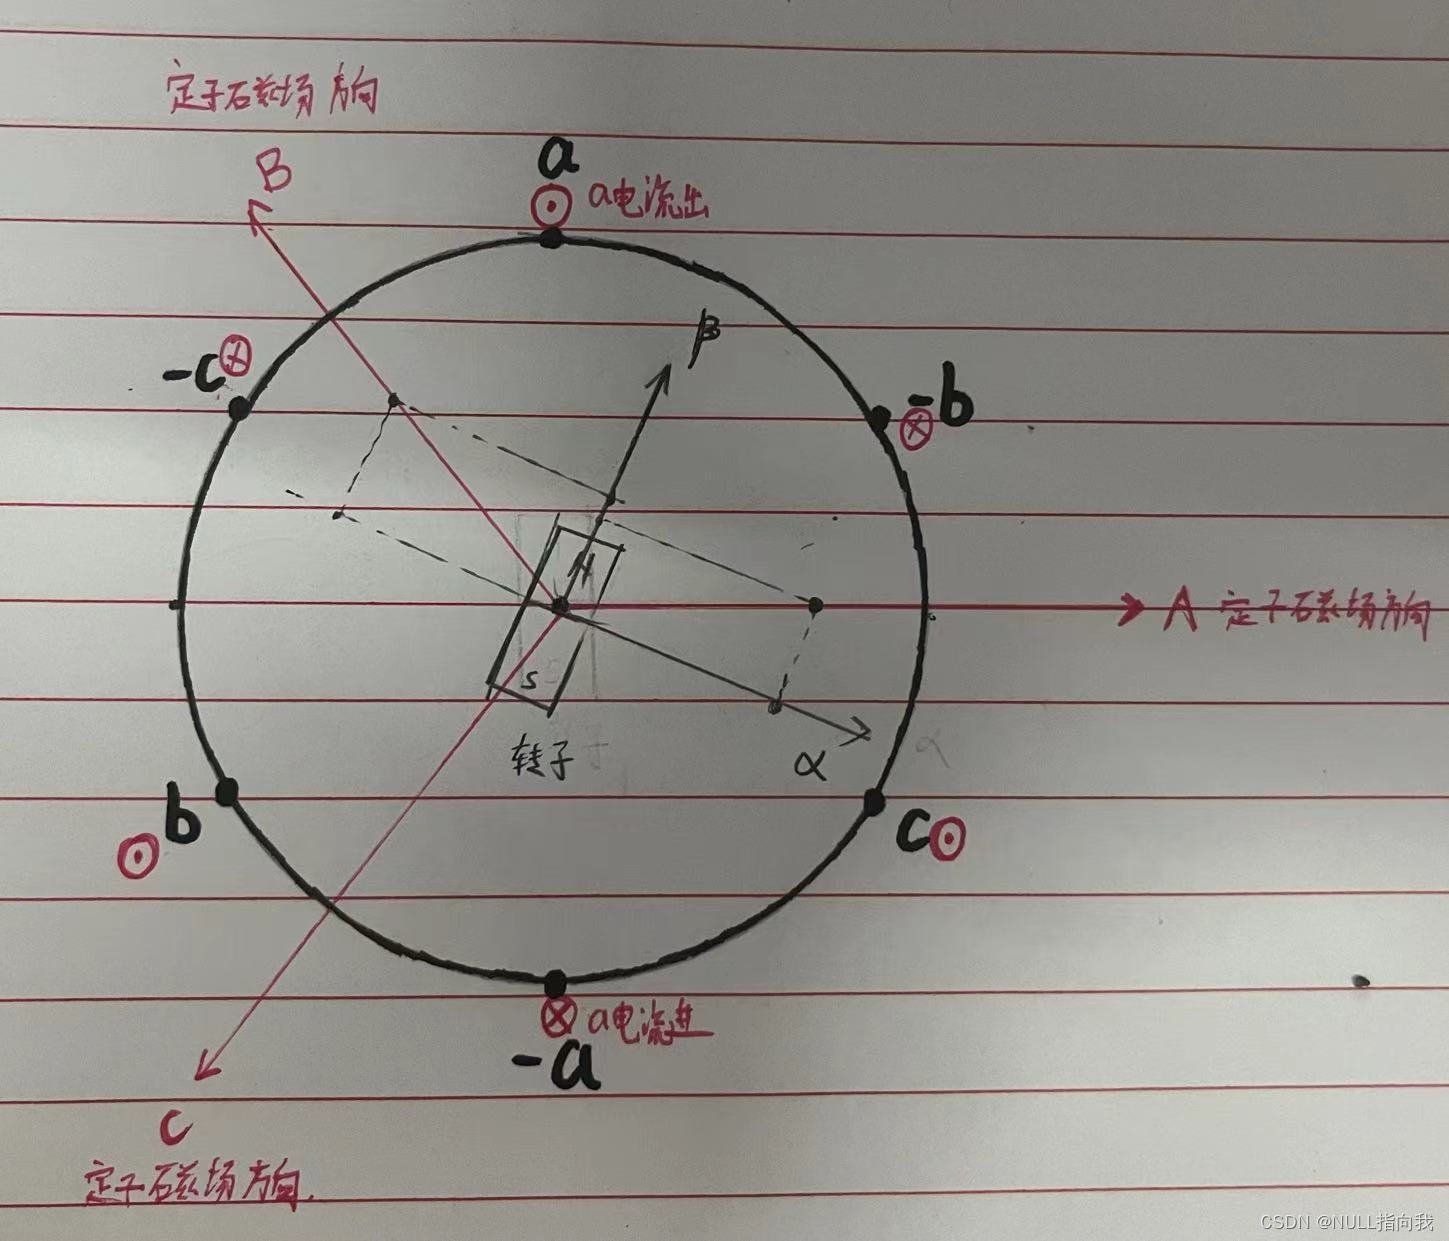 定子磁场方向
B
a
a电流出
β
-c
-b
N
A 定子磁场方向
S
转子
α
α
b
c
a电流进
-a
C
定子磁场方向.
CSDN @NULL指向我